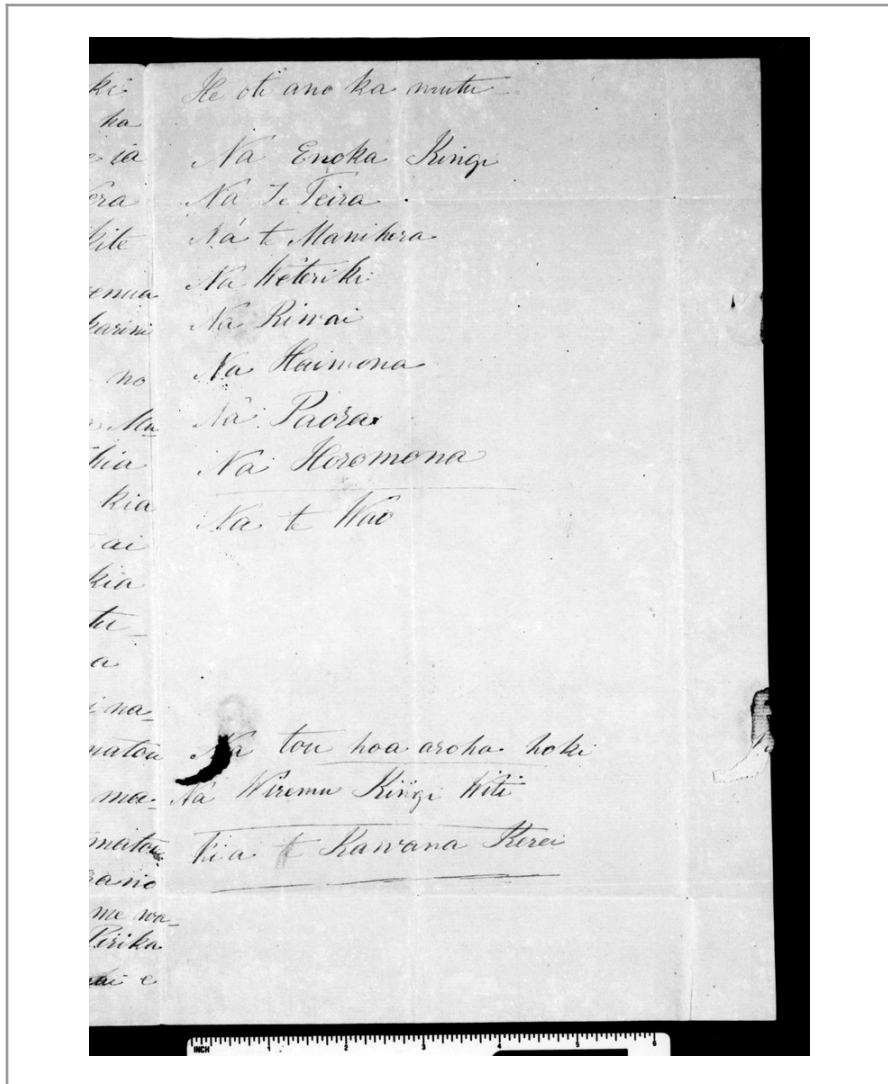 ki
ha
ia
era
kite
enua
karini
no
Mu_
hia
kia
ai
kia
tu_
a
i na_
matou
ma_
matou
ano
me wa_
Pirika
ai e
He oti ano ka mutu
Na Enoka Kingi
Na Te Teira.
Na te Manihera
Na Weteriki
Na Riwai
Na Haimona
Na Paora
Na Horomona
Na te Wao
Na tou hoa aroha hoki
Na Wiremu Kingi Witi
Kia te Kawana Kerei
INCH 1 2 3 4 5 6